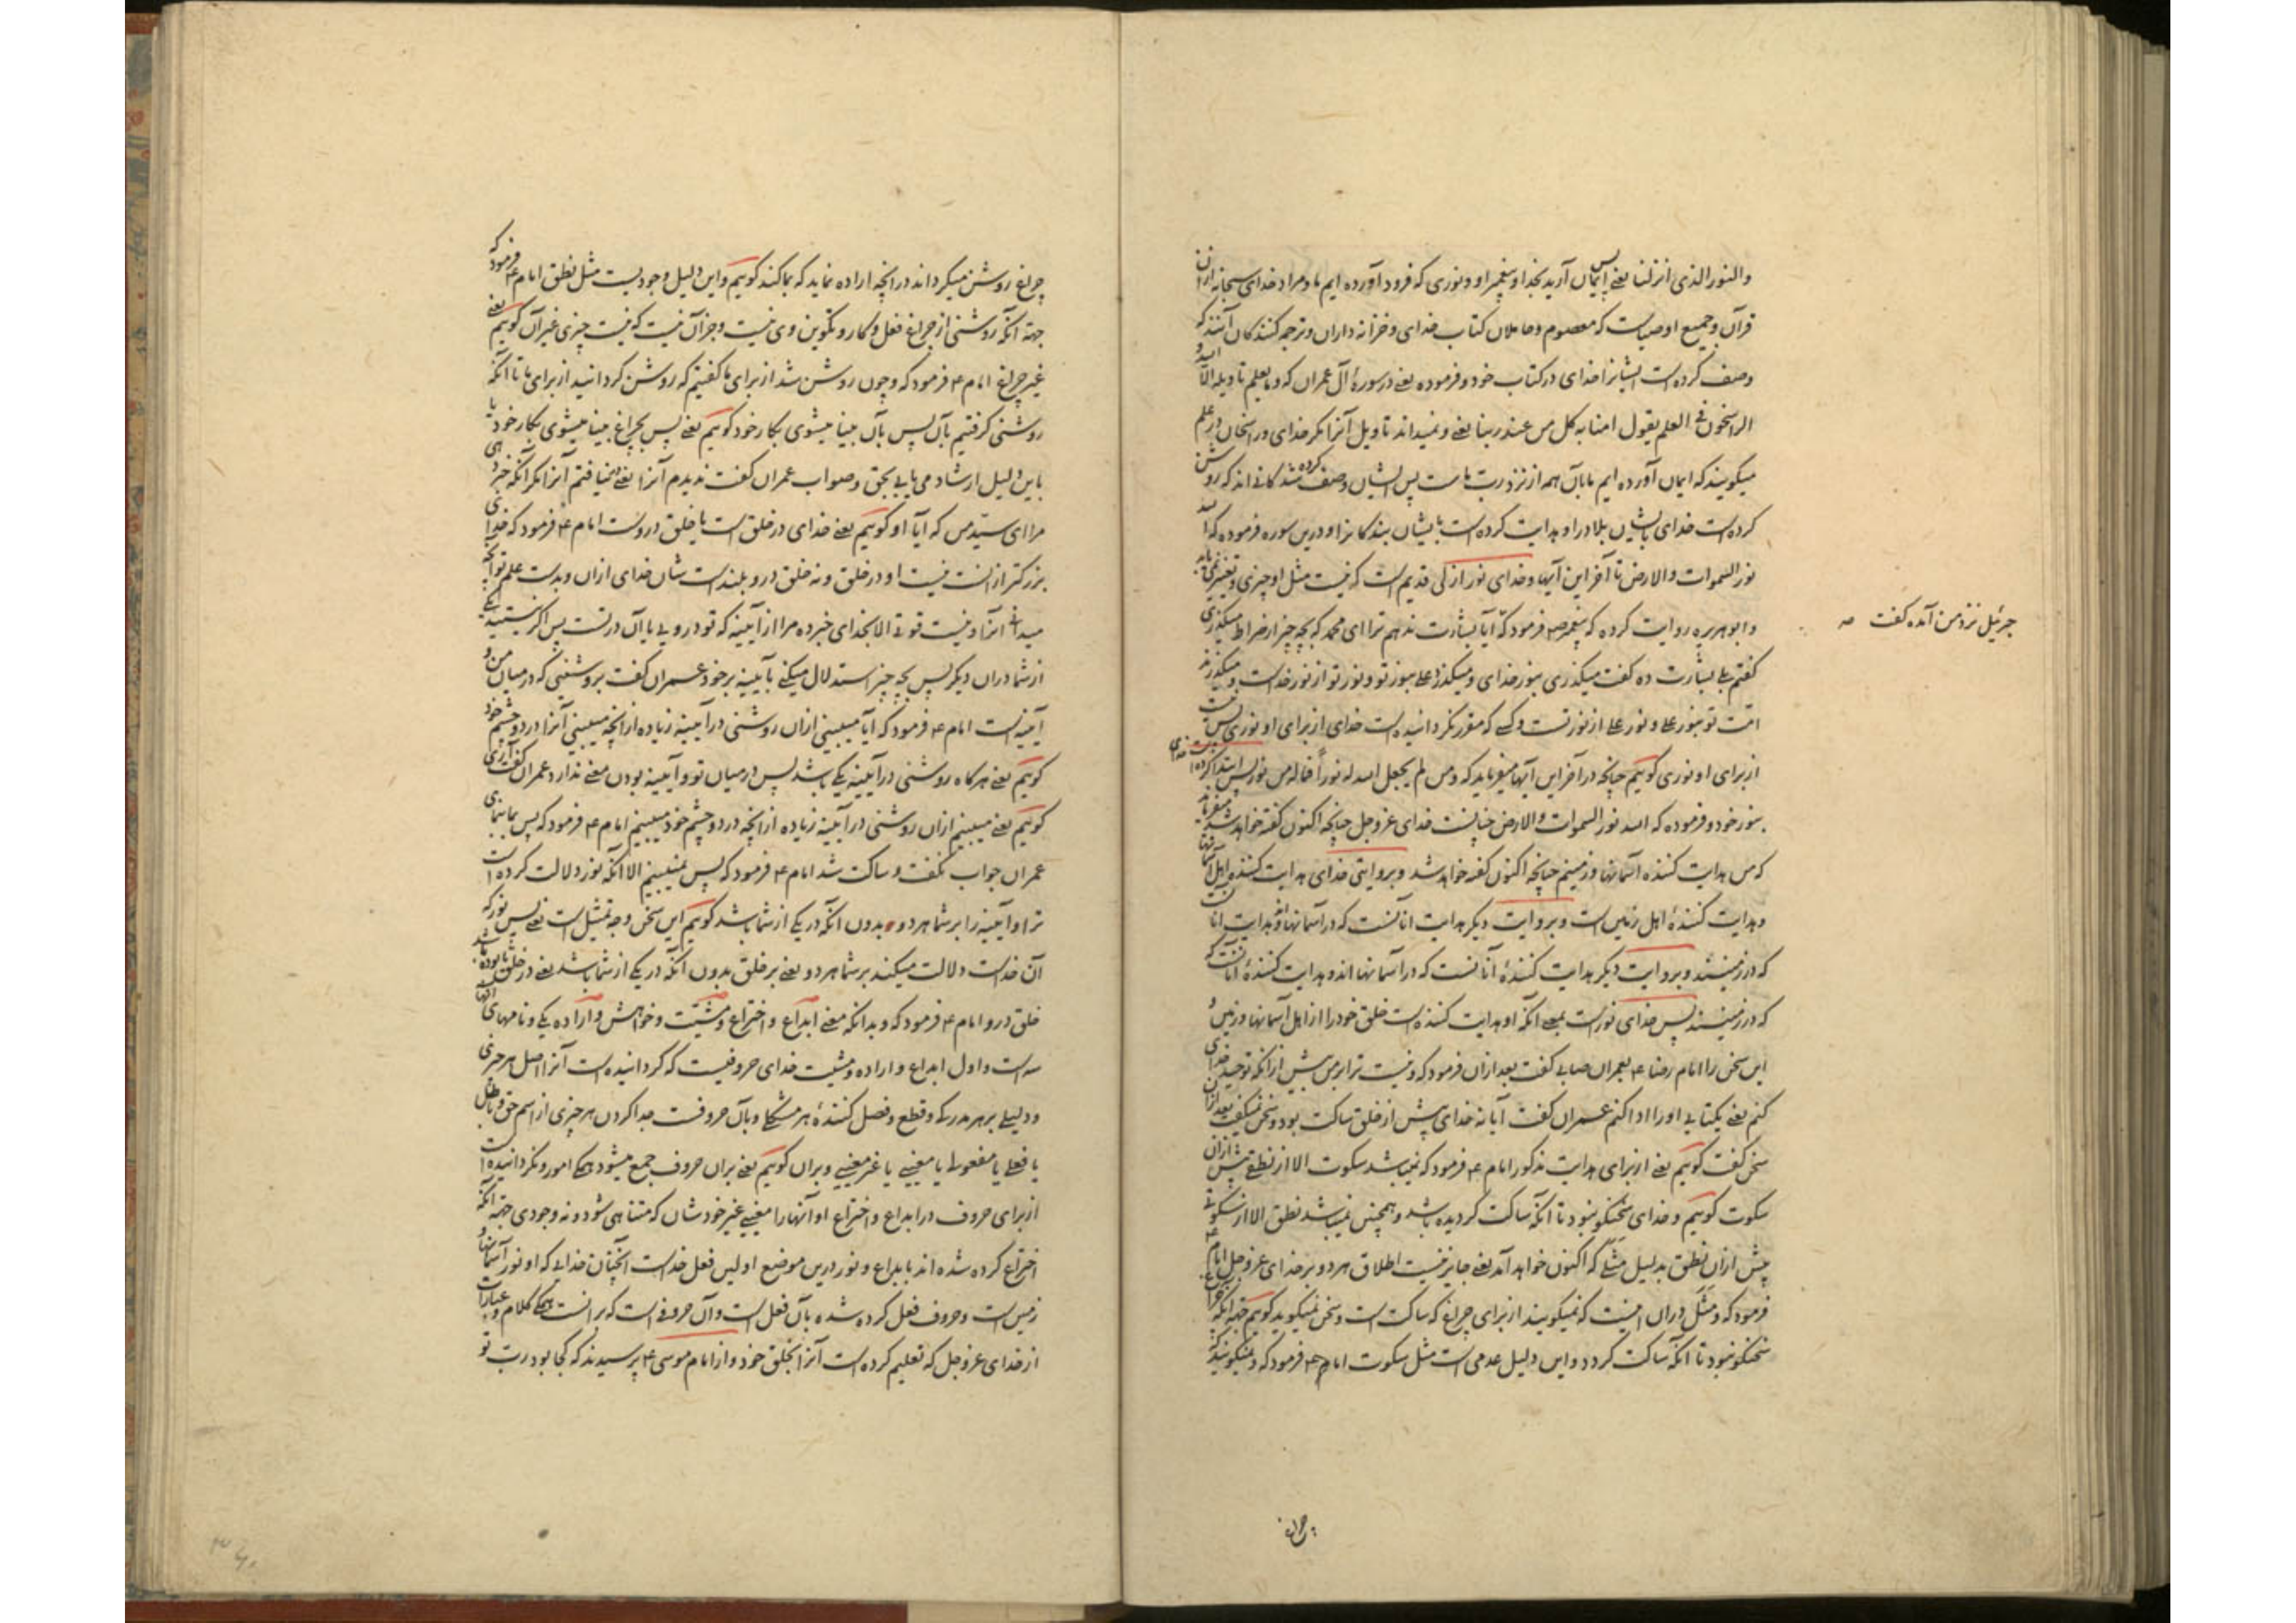 والنور الذی انزلنا یعنے پس ایمان آرید بخدا و پیغمبر او و نوری که فرود آورده ایم ما و مراد خدای سبحانه ازان
قرآن و جمیع اوصیاست که معصوم و حاملان کتاب خدای و خزانه داران و ترجمه کنندکان آنند که
وصف کرده است ایشانرا خدای در کتاب خود و فرموده یعنے در سورۀ آل عمران که و ما یعلم تاویله الا الله و
الراسخون فی العلم یقول امنا به کل من عند ربنا یعنے و نمیداند تاویل آنرا مکر خدای و راسخان در علم
میکویند که ایمان آورده ایم ما بآن همه از نزد ربّ ماست پس ایشان وصف کرده شدکانے اند که روشن
کرده است خدای بایشان بلاد را و هدایت کرده است بایشان بندکانرا و درین سوره فرموده که الله
نور السموات والارض تا آخر این آیها و خدای نور ازلی قدیم است که نیست مثل او چیزی و تغییر نمی یابد
و ابوهریره روایت کرده که پیغمبر ص فرمود که آیا بشارت ندهم ترا ای محمد که بچه چیز از صراط میکذری
جبرئیل نزد من آمده کفت صه
کفتم بلے بشارت ده کفت میکذری بنور خدای و میکذرد علے بنور تو و نور تو از نور خداست و میکذرند
امّت تو بنور علے و نور علے از نور تست و کسے که مقرر نکردانیده است خدای از برای او نوری پس نیست
از برای او نوری کوئیم چنانچه در آخر این آیها میفرماید که و من لم یجعل الله له نوراً فما له من نور پس ابتدا کرده است خدای
بنور خود و فرموده که الله نور السموات والارض چنانست خدای عز و جل چنانچه اکنون کفته خواهد شد میفرماید
که من هدایت کننده آسمانها و زمینم چنانچه اکنون کفته خواهد شد و بروایتی خدای هدایت کننده اهل آسمانها
و هدایت کنندۀ اهل زمین است و بروایت دیکر هدایت آنانست که در آسمانها و هدایت آنانست
که در زمینند و بروایت دیکر هدایت کنندۀ آنانست که در آسمانها اند و هدایت کنندۀ آنانست که
که در زمینند پس خدای نور است بمعنے آنکه او هدایت کننده است خلق خود را از اهل آسمانها و زمین و
این سخن را امام رضا ع بعمران صابی کفت بعد ازان فرمود که و نیست ترا از من بیش ازانکه توحید خدای
کنم یعنے یکتایی او را ادا کنم عمران کفت آیا نه خدای پیش از خلق ساکت بود و سخن نمیکفت بعد ازان
سخن کفت کوئیم یعنے از برای هدایت مذکور امام ع فرمود که نمیباشد سکوت الا از نطقے پیش ازان
سکوت کوئیم و خدای سخنکو نبود تا آنکه ساکت کردیده باشد و همچنین نمیباشد نطق الا از سکوتی
پیش ازان نطق بدلیل مثلے که اکنون خواهد آمد یعنے جایز نیست اطلاق هر دو بر خدای عز و جل امام ع
فرمود که و مثل دران اینست که نمیکویند از برای چراغ که ساکت است و سخن نمیکوید کوئیم جهة آنکه چراغ
سخنکو نبود تا آنکه ساکت کردد و این دلیل عدمی است مثل سکوت امام ع فرمود که و نمیکویند که
چراغ
چراغ روشن میکرداند در انچه اراده نماید که بما کند کوئیم و این دلیل وجودیست مثل نطق امام ع فرمود که
جهة آنکه روشنی از چراغ فعل و کار و تکوین وی نیست و جز آن نیست که نیست چیزی غیر آن کوئیم یعنے
غیر چراغ امام ع فرمود که و چون روشن شد از برای ما کفتیم که روشن کردانید از برای ما تا آنکه
روشنی کرفتیم بآن پس بآن بینا میشوی بکار خود کوئیم یعنے پس بچراغ بینا میشوی بکار خود یا
باین دلیل ارشاد می یابی بحق و صواب عمران کفت ندیدم آنرا یعنے نیافتم آنرا مکر آنکه خبر دهی
مرا ای سیّد من که آیا او کوئیم یعنے خدای در خلق است یا خلق دروست امام ع فرمود که خدای
بزرکتر از انست نیست او در خلق و نه خلق درو بلند است شان خدای ازان و بدست علم تو آنچه
میدانے آنرا و نیست قوتے الا بخدای خبر ده مرا از آیینه که تو درویی یا آن در تست پس اکر نیستید یکے
از شما دران دیکر پس بچه چیز استدلال میکنے بآیینه بر خود عمران کفت بروشنیی که در میان من و
آیینه است امام ع فرمود که آیا میبینی ازان روشنی در آیینه زیاده از انچه میبینی آنرا در دو چشم خود
کوئیم یعنے هرکاه روشنی در آیینه یکے باشد پس در میان تو و آیینه بودن معنے ندارد عمران کفت آری
کوئیم یعنے میبینم ازان روشنی در آیینه زیاده از انچه در دو چشم خود میبینم امام ع فرمود که پس بما بنمای
عمران جواب نکفت و ساکت شد امام ع فرمود که پس نمیبینم الا آنکه نور دلالت کرده است
ترا و آیینه را بر شما هر دو بدون آنکه در یکے از شما باشد کوئیم این سخن وجه تمثیل است یعنے پس نور که
آن خداست دلالت میکند بر شما هر دو یعنے بر خلق بدون آنکه در یکے از شما باشد یعنے در خلق بوده باشد یا
خلق درو امام ع فرمود که و بدانکه معنے ابداع و اختراع و مشیّت و خواهش و اراده یکے و نامهای آنها
سه است و اول ابداع و اراده و مشیت خدای حروفیست که کردانیده است آنرا اصل هر چیزی
و دلیلے بر هر مدرکے و قطع و فصل کنندۀ هر مشکلے و بآن حروفست جدا کردن هر چیزی از اسم حق و باطل
یا فعلے یا مفعولے یا معنیے یا غیر معنیے و بران کوئیم یعنے بران حروف جمع میشود همکے امور و نکردانیده است
از برای حروف در ابداع و اختراع او آنها را معنیے غیر خودشان که متناهی شود و نه وجودی جهة آنکه
اختراع کرده شده اند بابداع و نور درین موضع اولین فعل خداست آنچنان خدایے که او نور آسمانها و
زمین است و حروف فعل کرده شده بآن فعل است و آن حروفے است که برانست همکے کلام و عبارات
از خدای عز و جل که تعلیم کرده است آنرا بخلق خود و از امام موسی ع پرسیدند که کجا بود ربّ تو